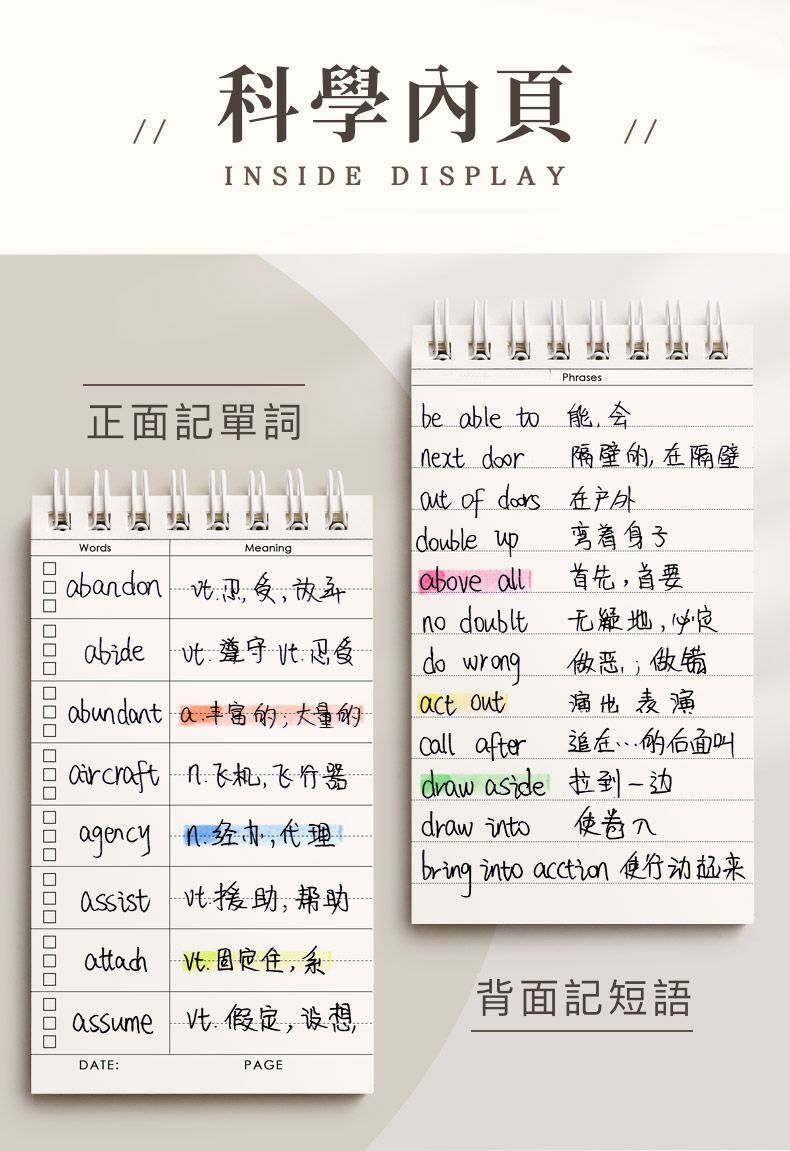 // 科學內頁 //
INSIDE DISPLAY
正面記單詞
Words Meaning
abandon vt.忍受,放弃
abide vt.遵守 vt.忍受
abundant a.丰富的,大量的
aircraft n.飞机,飞行器
agency n.经办,代理
assist vt.援助,帮助
attach vt.固定住,系
assume vt.假定,设想,
DATE: PAGE
Phrases
be able to 能,会
next door 隔壁的,在隔壁
out of doors 在户外
double up 弯着身子
above all 首先,首要
no doublt 无疑地,必定
do wrong 做恶.;做错
act out 演出 表演
call after 追在…的后面叫
draw aside 拉到一边
draw into 使卷入
bring into acction 使行动起来
背面記短語